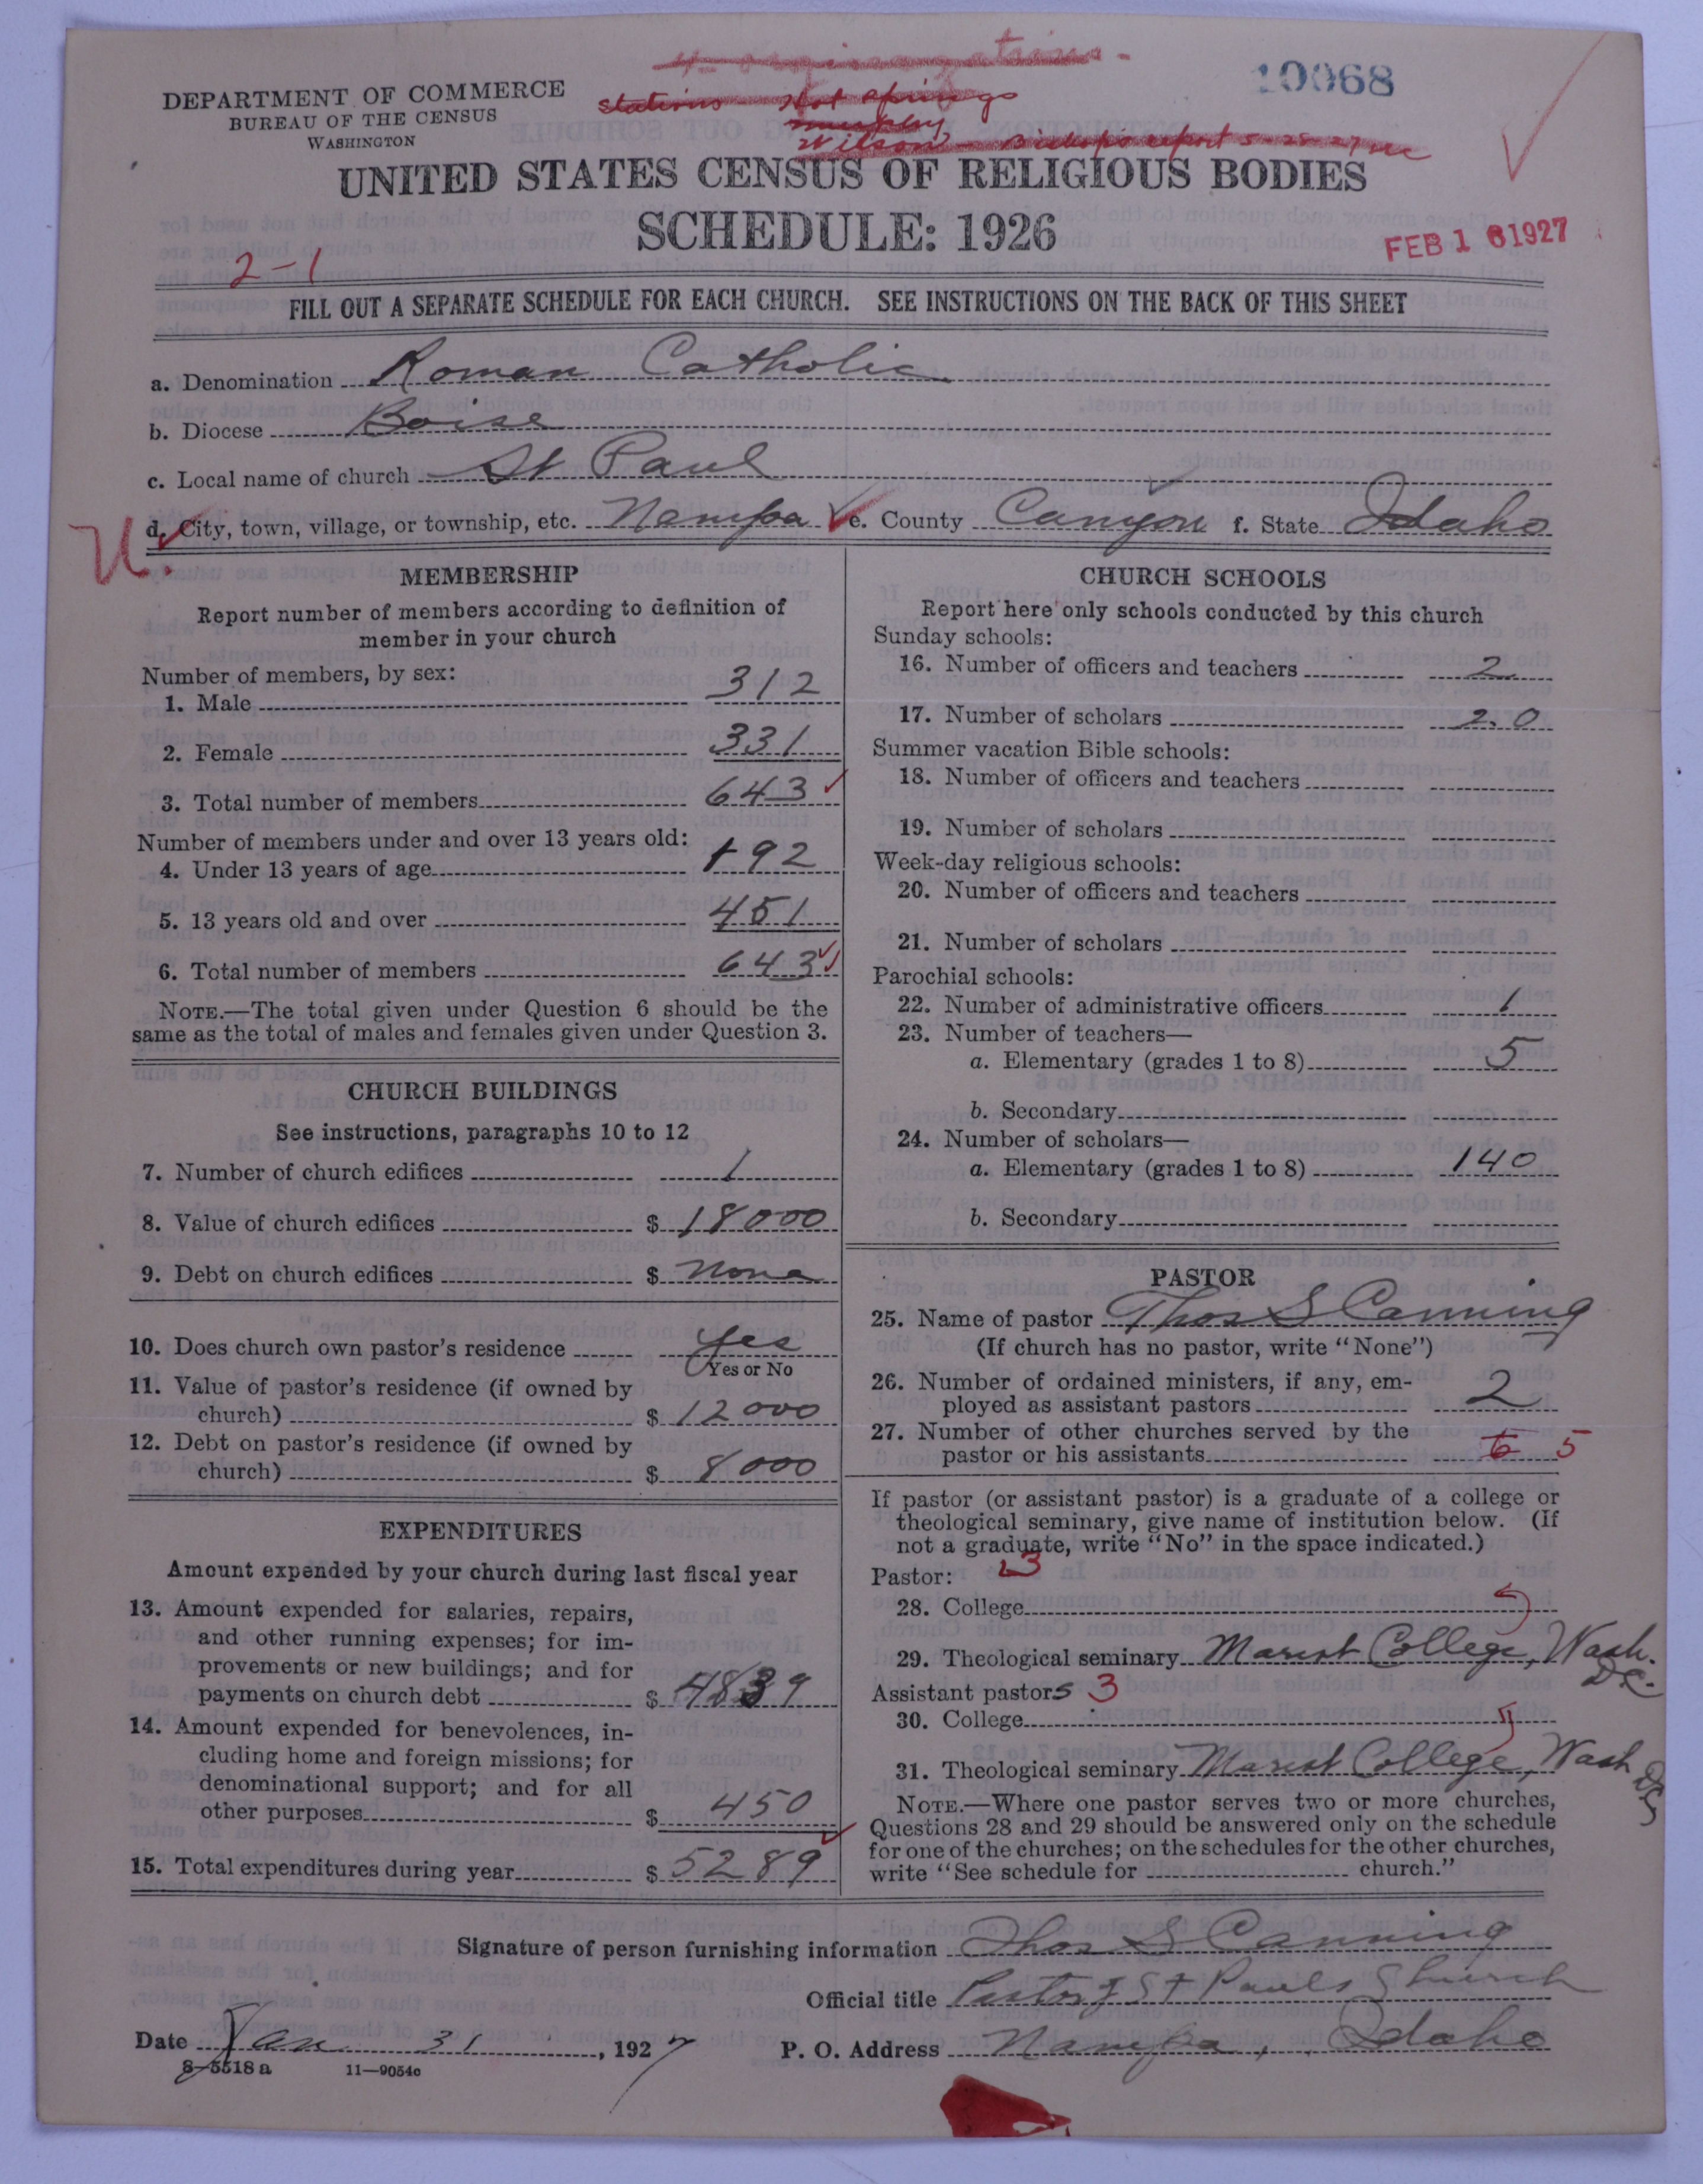 10068
DEPARTMENT OF COMMERCE
BUREAU OF THE CENSUS
WASHINGTON
stations Hot Springs
Murphy
Wilson - Bishop's report 5-28-27
UNITED STATES CENSUS OF RELIGIOUS BODIES
SCHEDULE: 1926
FEB 16 1927
2-1
FILL OUT A SEPARATE SCHEDULE FOR EACH CHURCH. SEE INSTRUCTIONS ON THE BACK OF THIS SHEET
a. Denomination Roman Catholic
b. Diocese Boise
c. Local name of church St Paul
d. City, town, village, or township, etc. Nampa e. County Canyon f. State Idaho
U.
MEMBERSHIP
Report number of members according to definition of
member in your church
Number of members, by sex:
1. Male 312
2. Female 331
3. Total number of members 643
Number of members under and over 13 years old:
4. Under 13 years of age 192
5. 13 years old and over 451
6. Total number of members 643
NOTE.—The total given under Question 6 should be the
same as the total of males and females given under Question 3.
CHURCH BUILDINGS
See instructions, paragraphs 10 to 12
7. Number of church edifices 1
8. Value of church edifices $ 18000
9. Debt on church edifices $ none
10. Does church own pastor's residence yes
Yes or No
11. Value of pastor's residence (if owned by
church) $ 12000
12. Debt on pastor's residence (if owned by
church) $ 8000
EXPENDITURES
Amount expended by your church during last fiscal year
13. Amount expended for salaries, repairs,
and other running expenses; for im-
provements or new buildings; and for
payments on church debt $ 4839
14. Amount expended for benevolences, in-
cluding home and foreign missions; for
denominational support; and for all
other purposes $ 450
15. Total expenditures during year $ 5289
CHURCH SCHOOLS
Report here only schools conducted by this church
Sunday schools:
16. Number of officers and teachers 2
17. Number of scholars 20
Summer vacation Bible schools:
18. Number of officers and teachers
19. Number of scholars
Week-day religious schools:
20. Number of officers and teachers
21. Number of scholars
Parochial schools:
22. Number of administrative officers 1
23. Number of teachers—
a. Elementary (grades 1 to 8) 5
b. Secondary
24. Number of scholars—
a. Elementary (grades 1 to 8) 140
b. Secondary
PASTOR
25. Name of pastor Thos S Canning
(If church has no pastor, write "None")
26. Number of ordained ministers, if any, em-
ployed as assistant pastors 2
27. Number of other churches served by the
pastor or his assistants 6 5
If pastor (or assistant pastor) is a graduate of a college or
theological seminary, give name of institution below. (If
not a graduate, write "No" in the space indicated.)
Pastor: 3
28. College
29. Theological seminary Marist College, Wash.
D.C.
Assistant pastors 3
30. College
31. Theological seminary Marist College, Wash DC
NOTE.—Where one pastor serves two or more churches,
Questions 28 and 29 should be answered only on the schedule
for one of the churches; on the schedules for the other churches,
write "See schedule for church."
Signature of person furnishing information Thos S Canning
Official title Pastor of St Pauls Church
Date Jan 31, 1927 P. O. Address Nampa, Idaho
8-5518 a 11—9054c